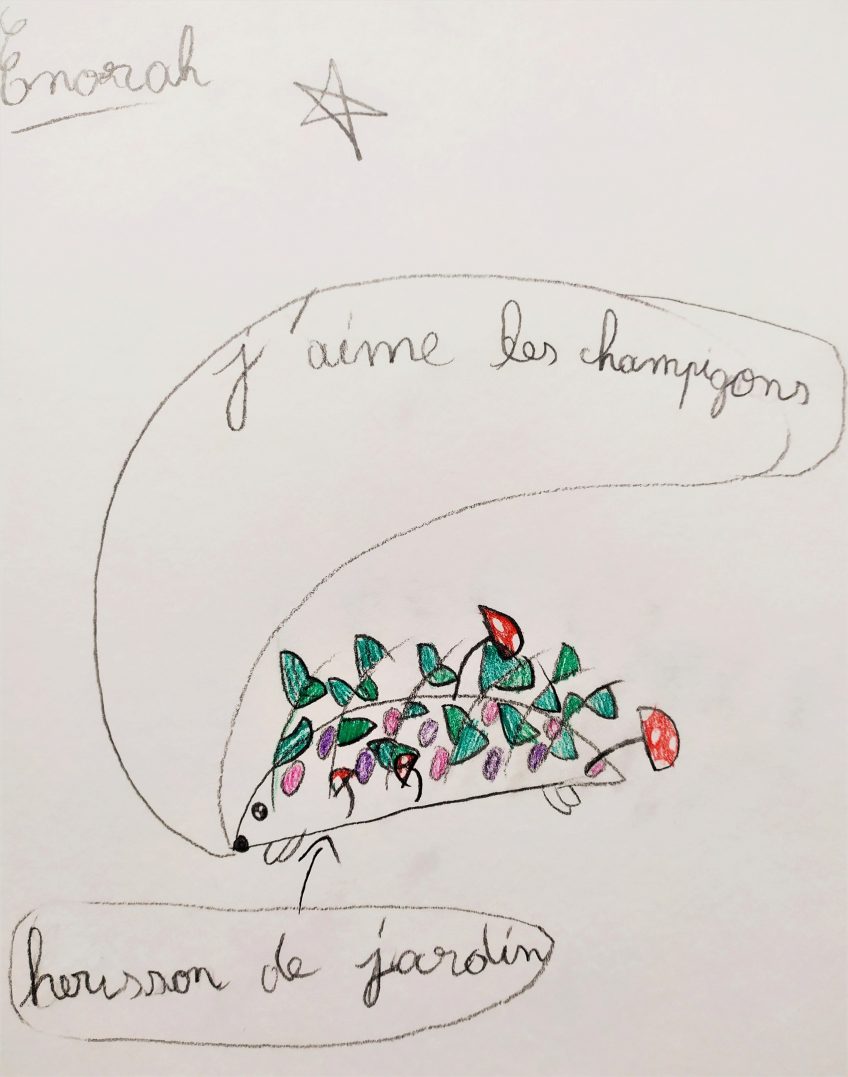 Enorah
j'aime les champigons
herisson de jardin